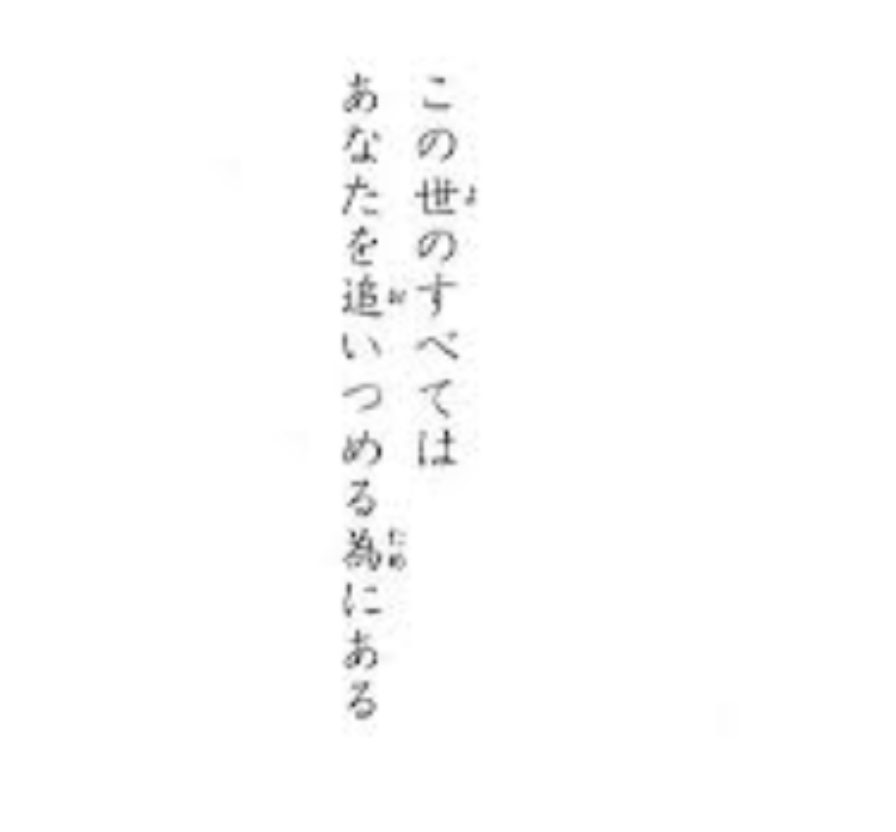 この世のすべては
あなたを追いつめる為にある